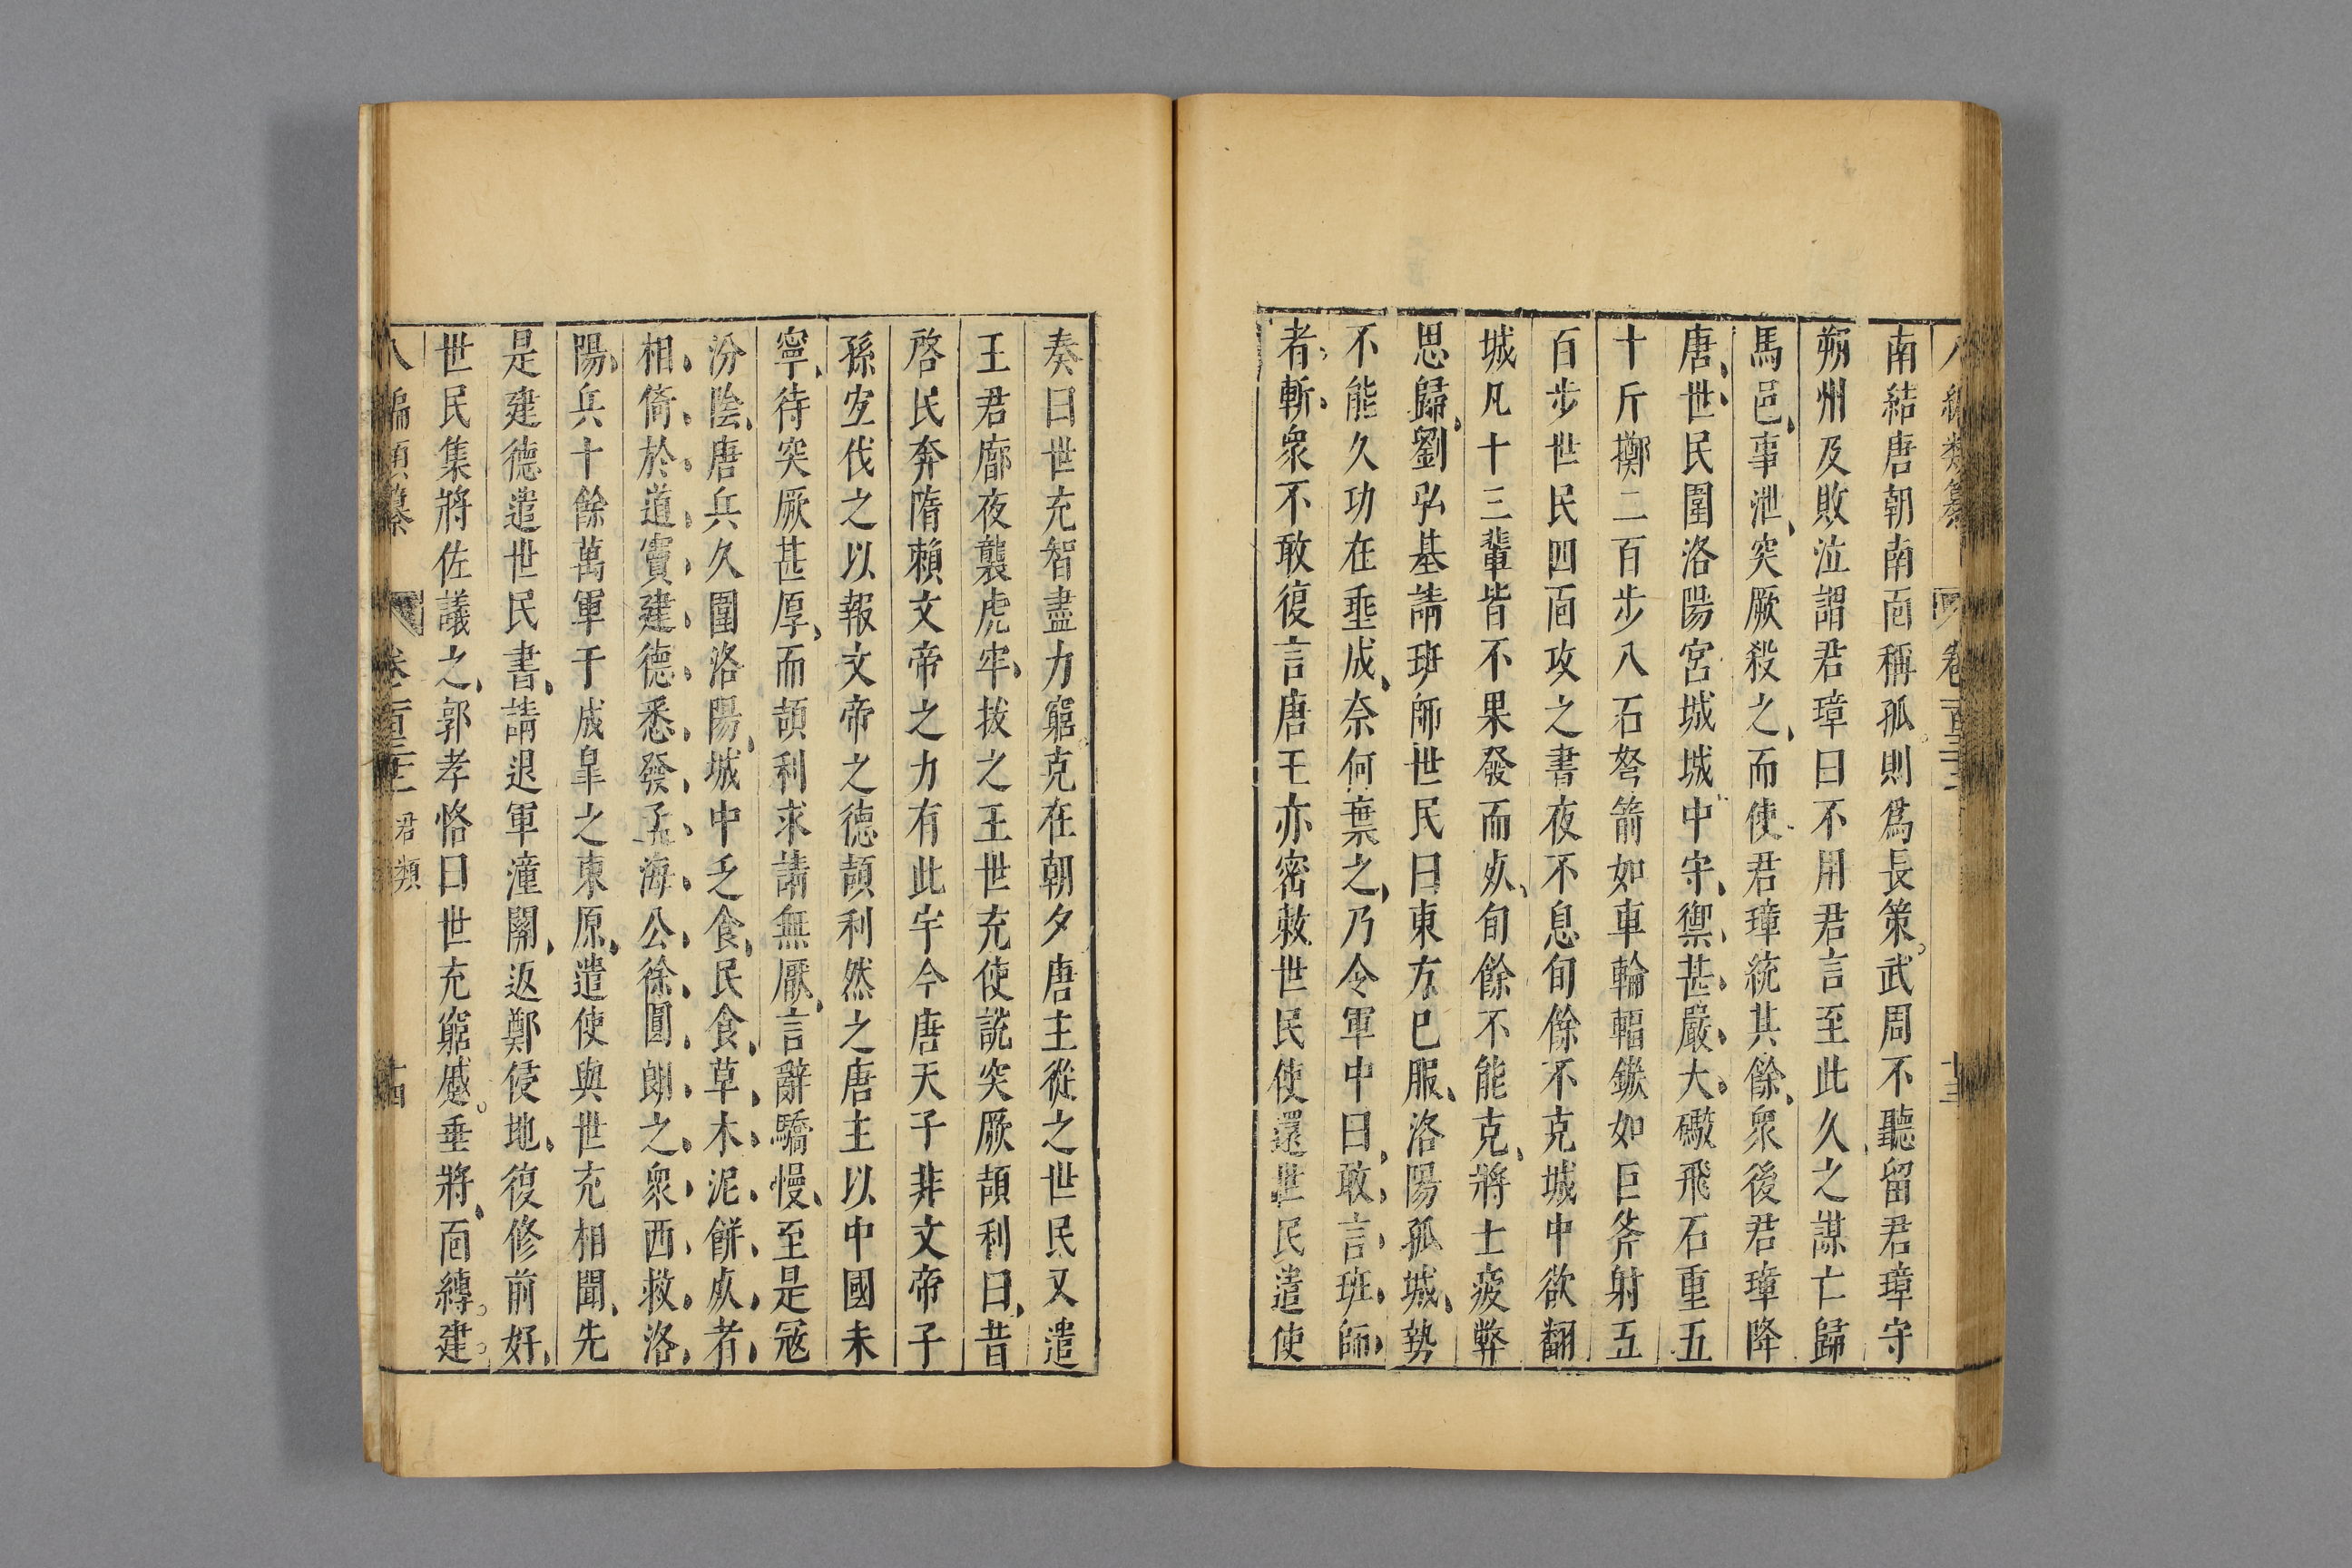 南結唐朝南面稱孤則爲長策武周不聽留君璋守
朔州及敗泣謂君璋曰不用君言至此久之謀亡歸
馬邑事泄突厥殺之而使君璋統其餘衆後君璋降
唐世民圍洛陽宮城城中守禦甚嚴大礮飛石重五
十斤擲二百步八石弩箭如車輪輻鏃如巨斧射五
百步世民四面攻之書夜不息旬餘不克城中欲翻
城凡十三輩皆不果發而㱙旬餘不能克將士疲弊
思歸劉弘基請班師世民曰東方已服洛陽孤城勢
不能久功在垂成奈何棄之乃令軍中曰敢言班師
者斬衆不敢復言唐王亦密敕世民使還世民遣使
奏曰世充智盡力窮克在朝夕唐主從之世民又遣
王君廓夜襲虎牢拔之王世充使說突厥頡利曰昔
啓民奔隋賴文帝之力有此宇今唐天子非文帝子
孫宜伐之以報文帝之德頡利然之唐主以中國未
寧待突厥甚厚而頡利求請無厭言辭驕慢至是寇
汾陰唐兵久圍洛陽城中乏食民食草木泥餅㱙者
相倚於道竇建德悉發孟海公徐圓朗之衆西救洛
陽兵十餘萬軍于成皐之東原遣使與世充相聞先
是建德遣世民書請退軍潼關返鄭侵地復修前好
世民集將佐議之郭孝恪曰世充窮蹙垂將面縛建
八編類纂 卷二百三十二 君類 十四